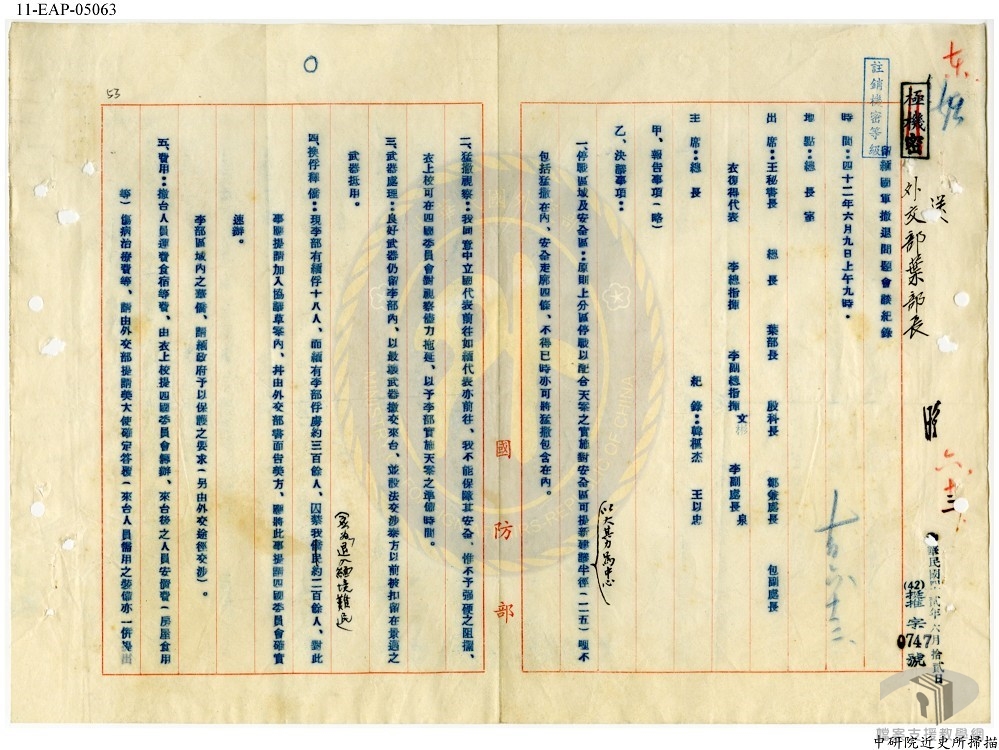 11-EAP-05063
東
註銷機密等級
極機密
送
外交部葉部長
六十三
中華民國四十貳年六月拾貳日
(42)摧字0747號
留緬國軍撤退問題會談紀錄
時間：四十二年六月九日上午九時。
地點：總長室
出席：王秘書長　總長　葉部長　殷科長　鄒兼處長　包副處長
衣復得代表　李總指揮　李副總指揮文　李副處長泉
主席：總長　紀錄：韓樞杰　王以忠
甲、報告事項（略）
乙、決議事項：
一、停戰區域及安全區：原則上分區停戰以配合天案之實施對安全區可提新建議半徑（二五）哩不
（以大其力為中心）
包括猛撤在內、安全走廊四條、不得已時亦可將猛撤包含在內。
國防部
53
二、猛撤視察：我同意中立國代表前往如緬代表亦前往、我不能保障其安全、惟不予强硬之阻擋、
衣上校可在四國委員會對視察儘力拖延、以予李部實施天案之準備時間。
三、武器處理：良好武器仍留李部內、以最壞武器撤交來台、並設法交涉泰方以前被扣留在景邁之
武器抵用。
（多為退入緬境難民）
四、換俘釋僑：現李部有緬俘十八人、而緬有李部俘虜約三百餘人、囚禁我僑民約二百餘人、對此
事須提請加入協議草案內、并由外交部書面告美方、應將此事提請四國委員會確實
速辦。
李部區域內之華僑、請緬政府予以保護之要求（另由外交途徑交涉）。
五、費用：撤台人員運費食宿等費、由衣上校提四國委員會辦、來台後之人員安置費（房屋食用
等）傷病治療費等、請由外交部提請美大使確定答覆（來台人員需用之裝備亦一併提出
檔案支援教學網
中研院近史所掃描